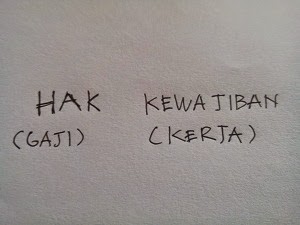 HAK KEWAJIBAN
(GAJI) (KERJA)